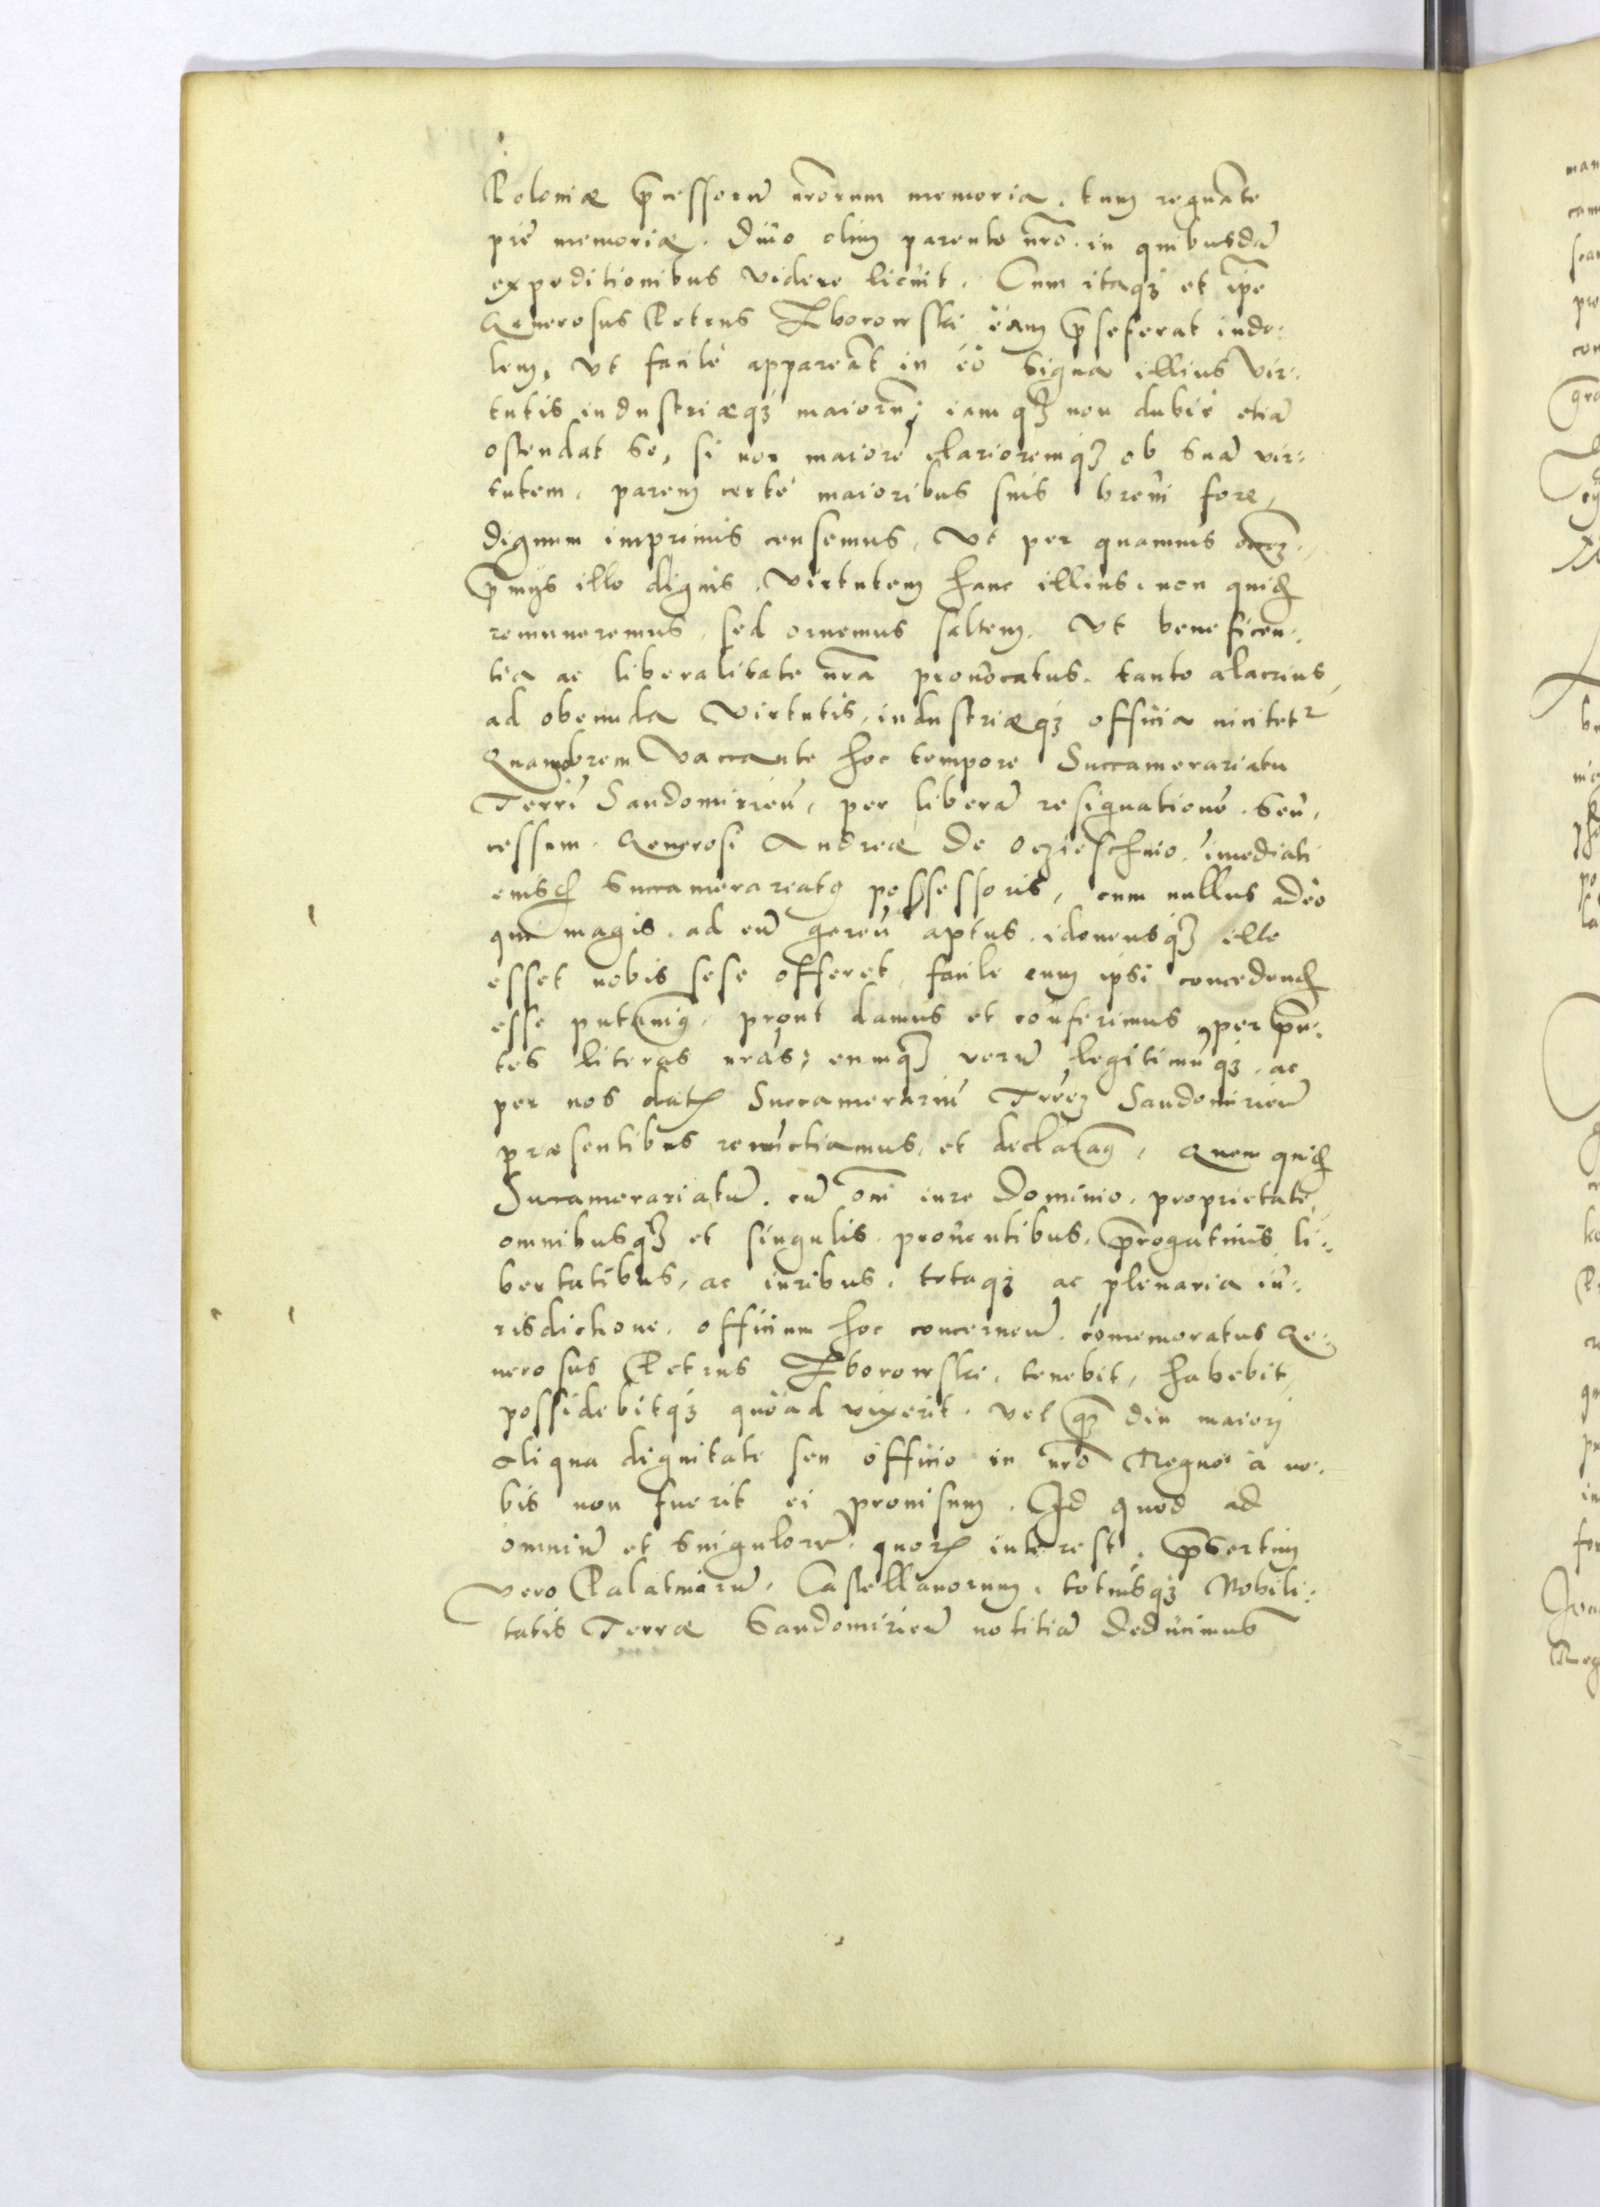 Poloniæ p̄cessorū n̄rorum memoria, tum regnāte
piē memoriæ. Diuo olim parente n̄ro. in quibusdā
expeditionibus videre licuit. Cum itaqꝫ et ip̄e
Generosus Petrus Zborowski eam p̄seferat indo:
lem, vt facilè appareāt in eo signa illius vir:
tutis industriæqꝫ maiorū; iam qꝫ non dubiè etiā
ostendat se, si non maiorē clarioremqꝫ ob suā vir:
tutem, parem certè maioribus suis breui fore,
dignum imprimis censemus, vt per quamuis
p̄mijs illo dignis, virtutem hanc illius, non quid̄
remuneremus, sed ornemus saltem. Vt beneficen:
tia ac liberalitate n̄ra prouocatus, tanto alacrius
ad obeunda virtutis, industriæqꝫ officia incitetᵣ
Quamobrem vaccante hoc tempore Succamerariatu
Terrē Sandomirieñ, per liberā resignationē seu,
cessum. Generosi Andreæ de Oczieschino, imediati
eiusd̄ Succamerareatꝰ possessoris, cum nullus adeo
qui magis, ad eū gereñ aptus, idoneusqꝫ illo
esset nobis sese offeret, facile eum ipsi concedend̄
esse putauimꝰ, prout damus et conferimus, per p̄n:
tes literas n̄ras; eumqꝫ verū legitimūqꝫ, ac
per nos datū Succamerariū Trēꝫ Sandomirieñ
præsentibus renunctiamus, et declaramꝰ, Quem quid̄
Succamerariatū, cū om̄i iure dominio, proprietate,
omnibusqꝫ et singulis prouentibus, p̄rogatiuis li:
bertatibus, ac iuribus, totaqꝫ ac plenaria iu:
risdictione, officium hoc concerneñ, comemoratus Ge:
nerosus Petrus Zborowski, tenebit, habebit,
possidebitqꝫ quoad vixerit, vel qꝫ diu maiori
aliqua dignitate seu officio in n̄ro Regno à no:
bis non fuerit ei prouisum. Id quod ad
omniū et singulorū, quorꝫ interest, p̄sertim
vero Palatinorū, Castellanorum, totiusqꝫ Nobili:
tatis Terræ Sandomirieñ notitiā deducimus